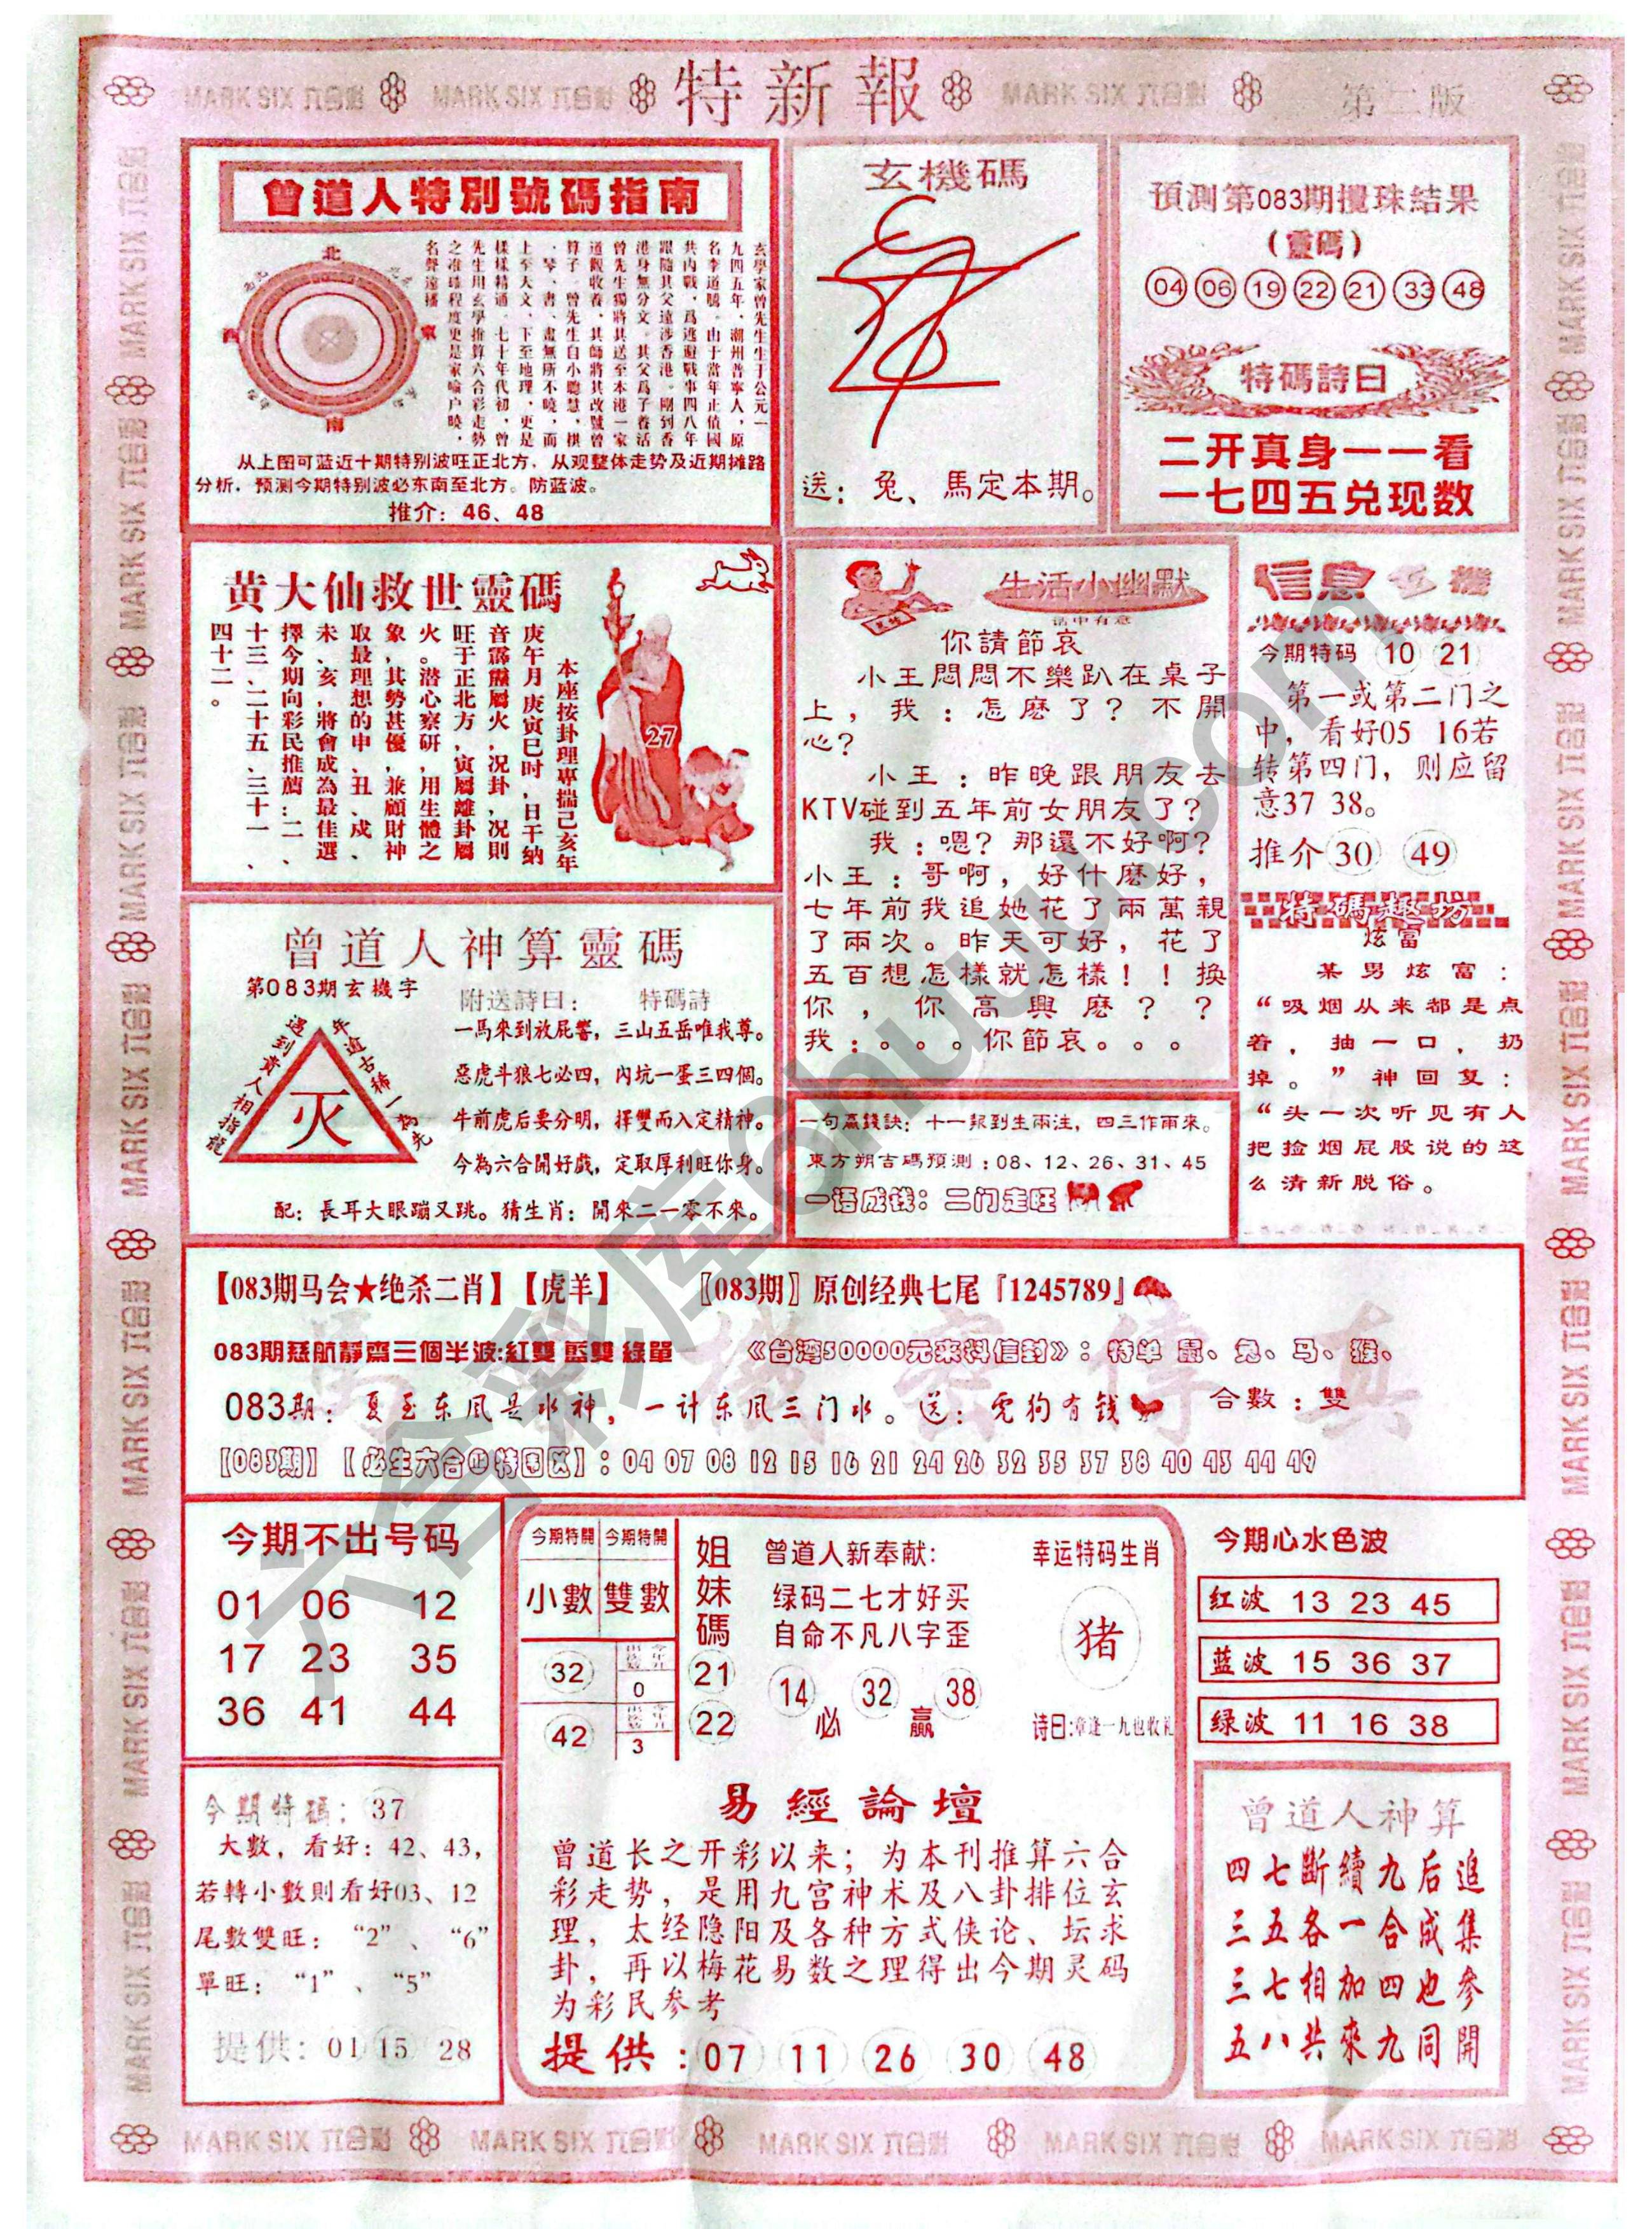 MARK SIX 六合彩
MARK SIX 六合彩
特新報
MARK SIX 六合彩
第二版
曾道人特別號碼指南
北
西
東
南
玄學家曾先生生于公元一
九四五年，潮州普寧人，原
名李道勝。由于當年正值國
共内戰，爲逃避戰事四八年
跟隨其父遠涉香港。剛到香
港身無分文。其父爲了養活
曾先生獨將其送至本港一家
道觀收養，其師將其改號曾
算子。曾先生自小聰慧，棋
、琴、書、畫無所不曉，而
上至天文、下至地理，更是
樣樣精通。七十年代初，曾
先生用玄學推算六合彩走勢
之准確程度更是家喻户曉，
名聲遠播
从上图可蓝近十期特别波旺正北方，从观整体走势及近期摊路
分析，预测今期特别波必东南至北方。防蓝波。
推介：46、48
玄機碼
送：兔、馬定本期。
預測第083期攪珠結果
(靈碼)
04 06 19 22 21 33 48
特碼詩曰
二开真身一一看
一七四五兑现数
黄大仙救世靈碼
本座按卦理專揣己亥年
庚午月庚寅巳时，日干纳
音霹靂屬火，况卦，况則
旺于正北方，寅屬離卦屬
火。潜心察研，用生體之
象，其勢甚優，兼顧財神
取最理想的申、丑、戌、
未、亥，將會成為最佳選
擇今期向彩民推薦：二、
十三、二十五、三十一、
四十二。
27
生活小幽默
話中有意
你請節哀
小王悶悶不樂趴在桌子
上，我：怎麼了？不開
心？
小王：昨晚跟朋友去
KTV碰到五年前女朋友了？
我：嗯？那還不好啊？
小王：哥啊，好什麼好，
七年前我追她花了兩萬親
了兩次。昨天可好，花了
五百想怎樣就怎樣！！換
你，你高興麼？？
我：。。。你節哀。。。
信息玄機
今期特码 10 21
第一或第二门之
中，看好05 16若
转第四门，则应留
意37 38。
推介 30 49
特碼趣坊
炫富
某男炫富：
“吸烟从来都是点
着，抽一口，扔
掉。”神回复：
“头一次听见有人
把捡烟屁股说的这
么清新脱俗。
曾道人神算靈碼
第083期玄機字
附送詩曰： 特碼詩
遇到貴人相指龍
年逾古稀一為先
灭
一馬來到放屁響，三山五岳唯我尊。
惡虎斗狼七必四，内坑一蛋三四個。
牛前虎后要分明，擇雙而入定精神。
今為六合開好戲，定取厚利旺你身。
配：長耳大眼蹦又跳。猜生肖：開來二一零不來。
一句贏錢訣：十一報到生兩注，四三作兩來。
東方朔吉碼預測：08、12、26、31、45
一语成钱：二门走旺
【083期马会★绝杀二肖】【虎羊】
〖083期〗原创经典七尾『1245789』
083期慈航靜齋三個半波:紅雙 藍雙 綠單
《台湾50000元来料信封》：特单 鼠、兔、马、猴、
083期：夏至东风是水神，一计东风三门水。送：虎狗有钱
合數：雙
【083期】【必生六合㊣特围区】：04 07 08 12 15 16 21 24 26 32 35 37 38 40 43 44 49
今期不出号码
01 06 12
17 23 35
36 41 44
今期特開 今期特開
小數 雙數
32
今年开出次数
0
42
今年开出次数
3
姐妹碼
21
22
曾道人新奉献：
绿码二七才好买
自命不凡八字歪
14 32 38
必 赢
幸运特码生肖
猪
诗曰:章逢一九也收礼
今期心水色波
红波 13 23 45
蓝波 15 36 37
绿波 11 16 38
今期特碼：37
大數，看好：42、43，
若轉小數則看好03、12
尾數雙旺：“2”、“6”
單旺：“1”、“5”
提供：01 15 28
易經論壇
曾道长之开彩以来；为本刊推算六合
彩走势，是用九宫神术及八卦排位玄
理，太经隐阳及各种方式侠论、坛求
卦，再以梅花易数之理得出今期灵码
为彩民参考
提供：07 11 26 30 48
曾道人神算
四七斷續九后追
三五各一合成集
三七相加四也參
五八共來九同開
MARK SIX 六合彩
MARK SIX 六合彩
MARK SIX 六合彩
MARK SIX 六合彩
MARK SIX 六合彩
六合彩库6huuu.com